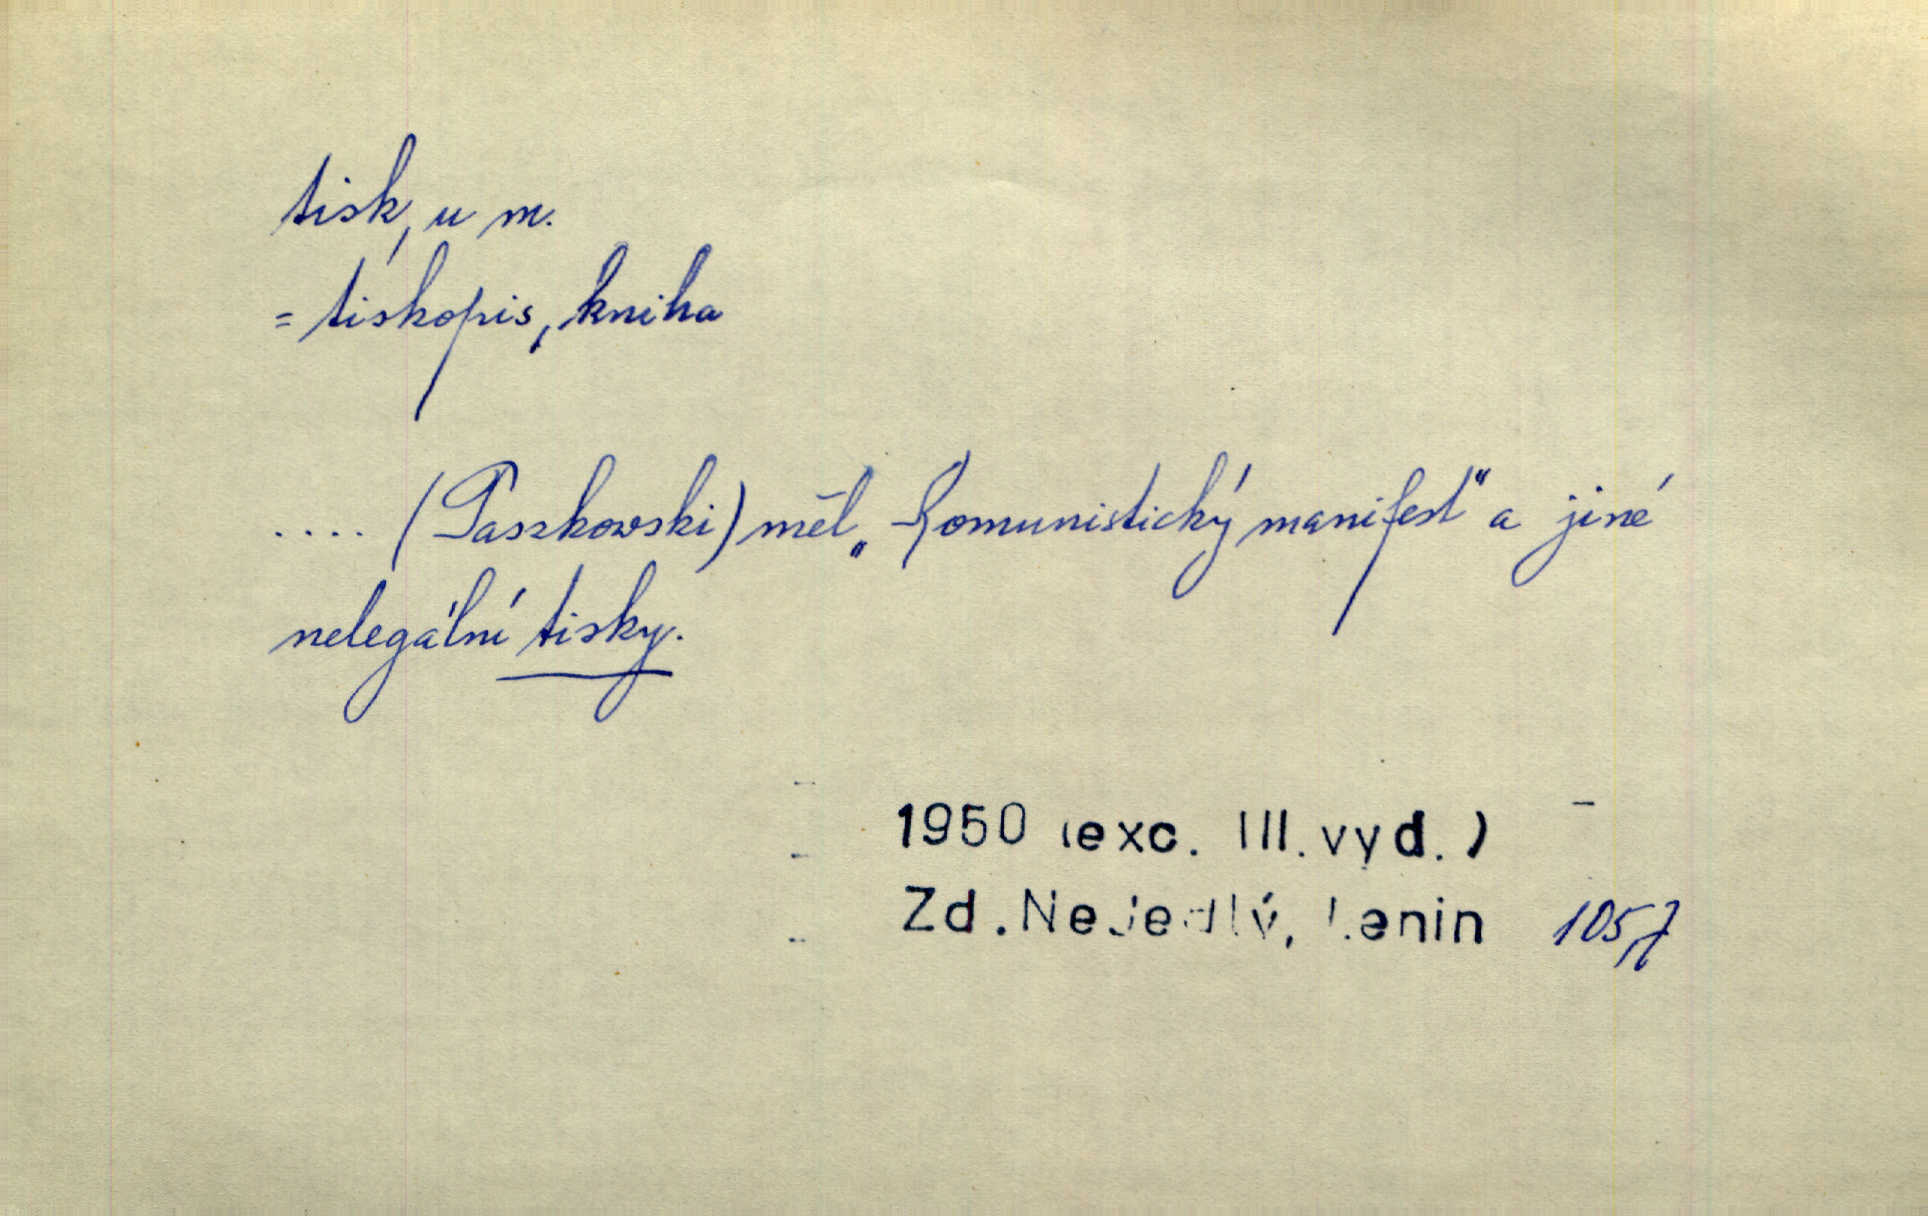 tisk, u m.
= tiskopis, kniha
.... (Paszkowski) měl „Komunistický manifest" a jiné
nelegální tisky.
1950 (exc. III. vyd.)
Zd. Nejedlý, Lenin 105